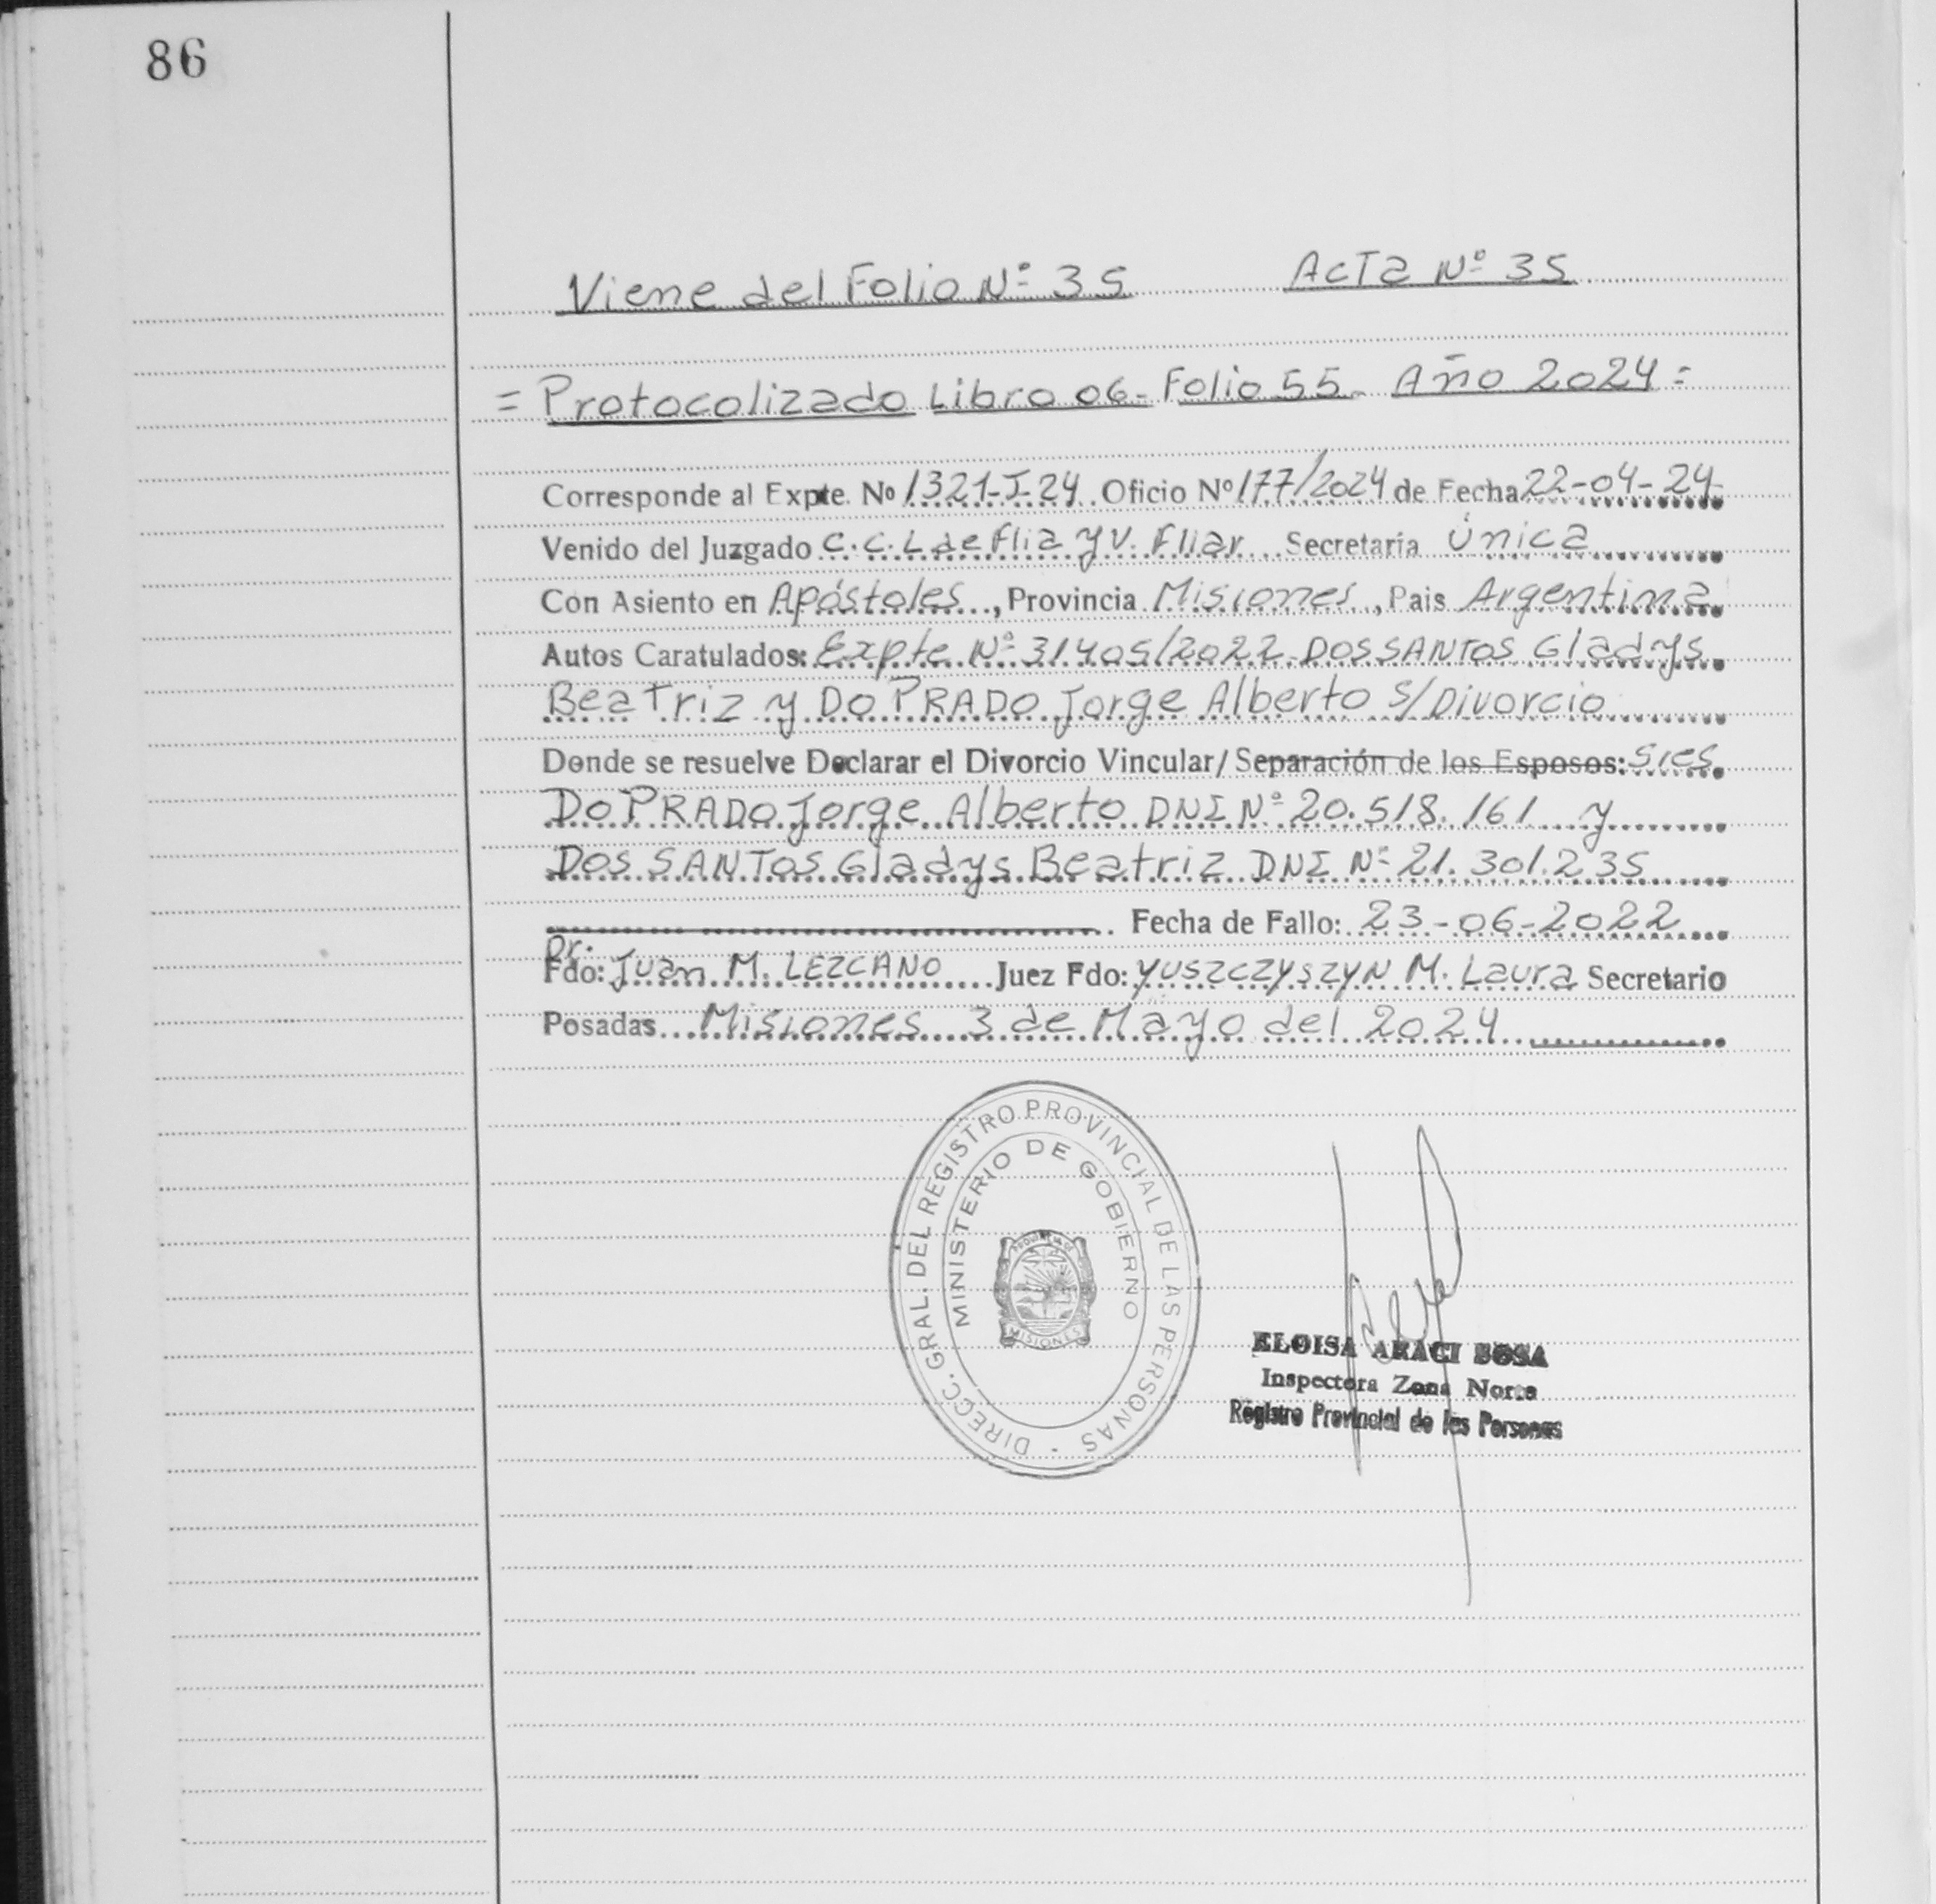 86
Viene del Folio Nº 35 Acta Nº 35
= Protocolizado Libro 06- Folio 55- Año 2024 =
Corresponde al Expte. Nº 1321-I-24 Oficio Nº 177/2024 de Fecha 22-04-24
Venido del Juzgado C.C.L de Flia y V. Fliar Secretaria Única
Con Asiento en Apóstoles, Provincia Misiones, Pais Argentina
Autos Caratulados: Expte Nº 31405/2022 DOS SANTOS Gladys
Beatriz y DO PRADO Jorge Alberto S/Divorcio
Donde se resuelve Declarar el Divorcio Vincular/ Separación de los Esposos: Sres
DO PRADO Jorge Alberto DNI Nº 20.518.161 y
DOS SANTOS Gladys Beatriz DNI Nº 21.301.235
Fecha de Fallo: 23-06-2022
Dr.
Fdo: Juan M. LEZCANO Juez Fdo: YUSZCZYSZYN M. Laura Secretario
Posadas Misiones 3 de Mayo del 2024
DIRECC. GRAL. DEL REGISTRO PROVINCIAL DE LAS PERSONAS -
MINISTERIO DE GOBIERNO
PROVINCIA DE
MISIONES
ELOISA ARACI SOSA
Inspectora Zona Norte
Registro Provincial de las Personas